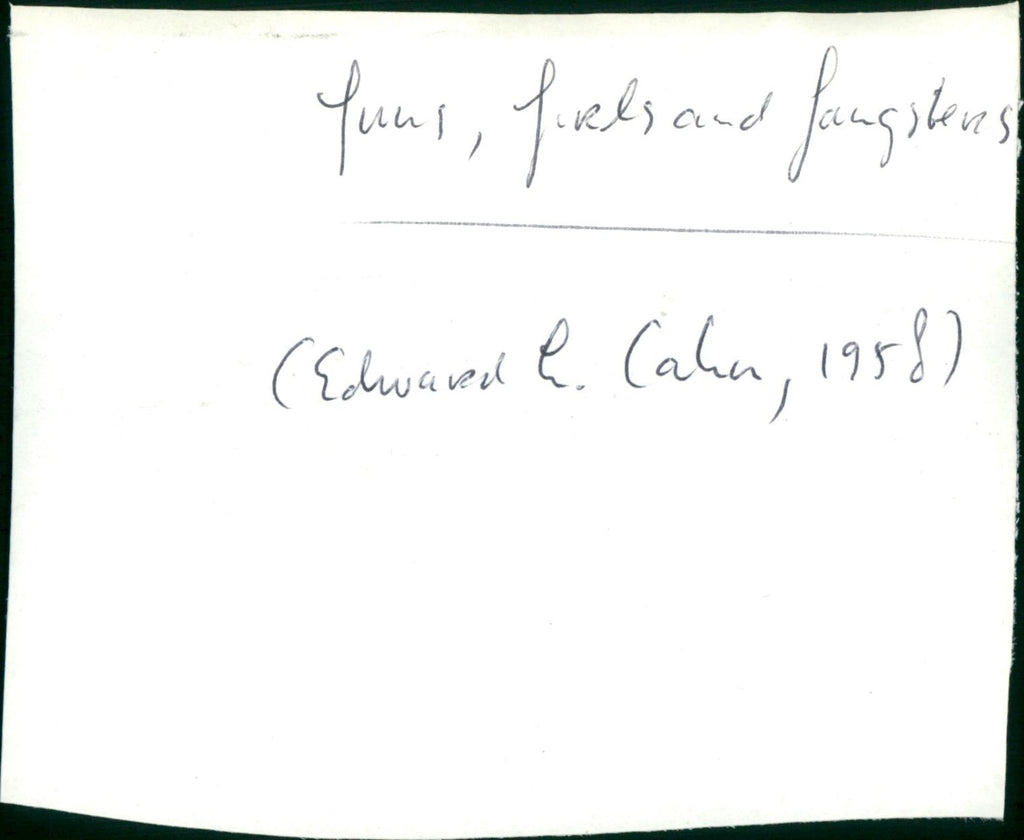 Guns, Girls and Gangsters
(Edward L. Cahn, 1958)